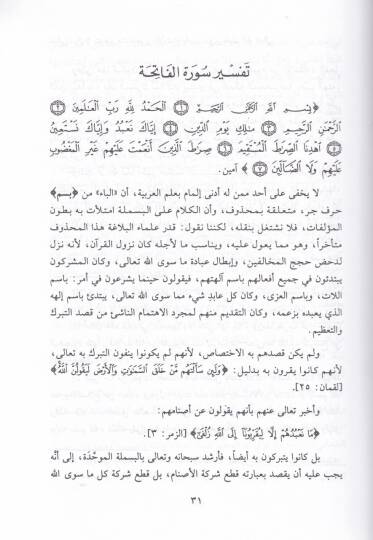 تفسير سورة الفاتحة
﴿بِسْمِ اللَّهِ الرَّحْمَٰنِ الرَّحِيمِ ١ الْحَمْدُ لِلَّهِ رَبِّ الْعَالَمِينَ ٢
الرَّحْمَٰنِ الرَّحِيمِ ٣ مَالِكِ يَوْمِ الدِّينِ ٤ إِيَّاكَ نَعْبُدُ وَإِيَّاكَ نَسْتَعِينُ
٥ اهْدِنَا الصِّرَاطَ الْمُسْتَقِيمَ ٦ صِرَاطَ الَّذِينَ أَنْعَمْتَ عَلَيْهِمْ غَيْرِ الْمَغْضُوبِ
عَلَيْهِمْ وَلَا الضَّالِّينَ ٧﴾ آمين.
لا يخفى على أحد ممن له أدنى إلمام بعلم العربية، أن «الباء» من ﴿بسم﴾
حرف جر، متعلقة بمحذوف، وأن الكلام على البسملة امتلأت به بطون
المؤلفات، فلا نشتغل بنقله، لكننا نقول: قدر علماء البلاغة هذا المحذوف
متأخراً، وهو مما يعول عليه، ويناسب ما لأجله كان نزول القرآن، لأنه نزل
لدحض حجج المخالفين، وإبطال عبادة ما سوى الله تعالى، وكان المشركون
يبتدئون في جميع أفعالهم باسم آلهتهم، فيقولون حينما يشرعون في أمر: باسم
اللات، وباسم العزى، وكان كل عابدِ شيء مما سوى الله تعالى، يبتدئ باسم إلهه
الذي يعبده بزعمه، وكان التقديم منهم لمجرد الاهتمام الناشئ من قصد التبرك
والتعظيم.
ولم يكن قصدهم به الاختصاص، لأنهم لم يكونوا ينفون التبرك به تعالى،
لأنهم كانوا يقرون به بدليل: ﴿وَلَئِن سَأَلْتَهُم مَّنْ خَلَقَ السَّمَاوَاتِ وَالْأَرْضَ لَيَقُولُنَّ اللَّهُ﴾
[لقمان: ٢٥].
وأخبر تعالى عنهم بأنهم يقولون عن أصنامهم:
﴿مَا نَعْبُدُهُمْ إِلَّا لِيُقَرِّبُونَا إِلَى اللَّهِ زُلْفَىٰ﴾ [الزمر: ٣].
بل كانوا يتبركون به أيضاً، فأرشد سبحانه وتعالى بالبسملة الموحّدة، إلى أنَّه
يجب عليه أن يقصد بعبارته قطع شركة الأصنام، بل قطع شركة كل ما سوى الله
٣١